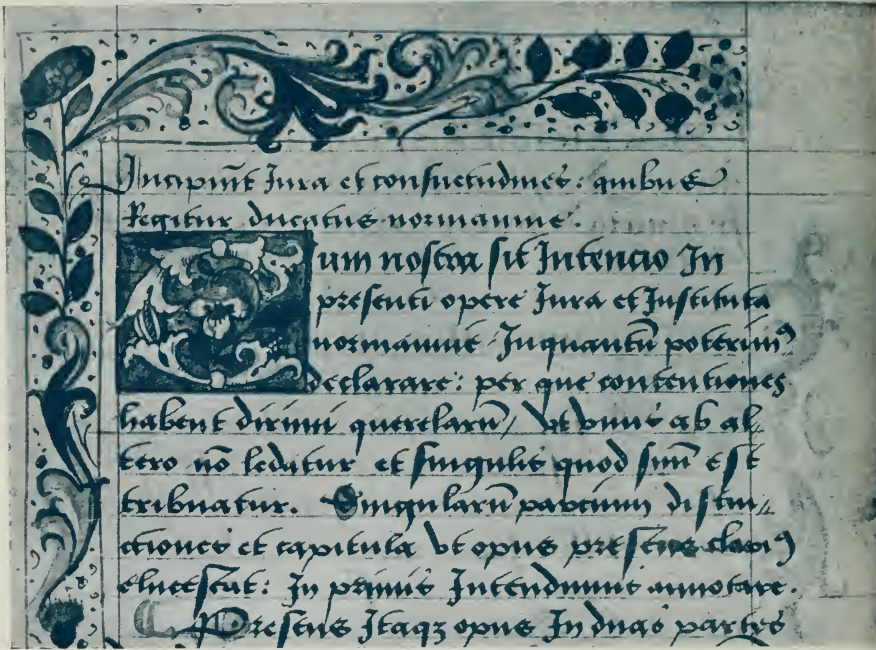 Incipiūt Iura et consuetudines: quibus
Regitur ducatus normannie.
Cum nostra sit Intencio In
presenti opere Iura et Instituta
normannie Inquantū poterimꝰ
declarare: per que contentiones
habent dirimi querelarū/ vt vnus ab al-
tero nō ledatur et singulis quod suū est
tribuatur. Singularū parcium distin-
ctiones et capitula vt opus presens clariꝰ
elucescat: In primis Intendimus annotare.
Presens Itaqꝫ opus In duas partes